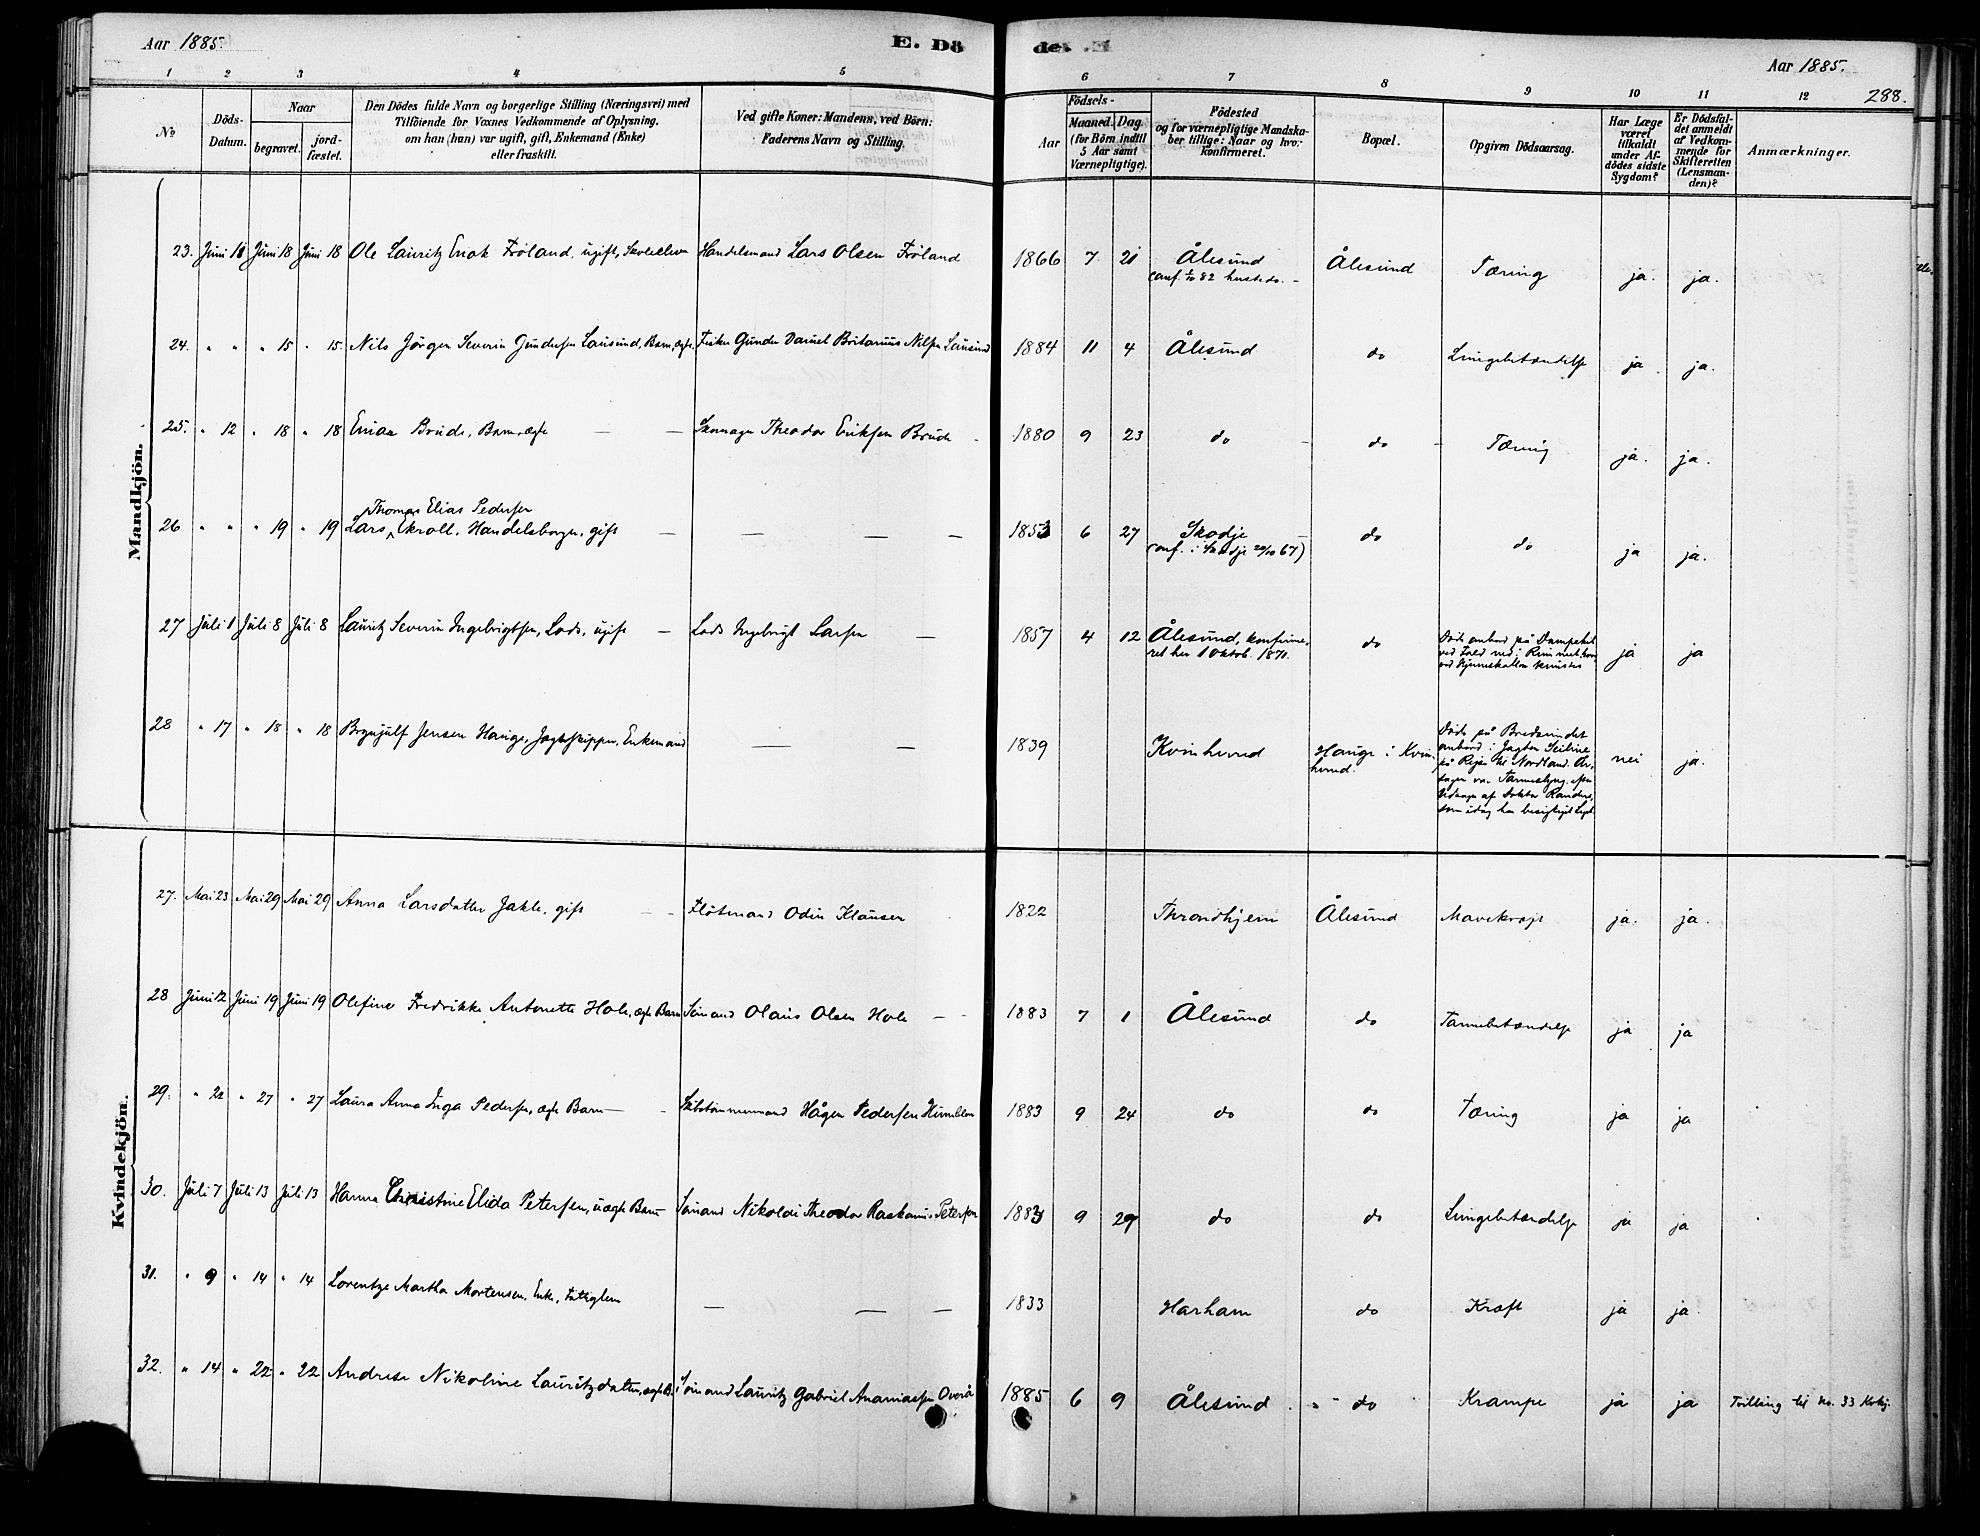 Aar 1885.
E. Dö
de. E
Aar 1885.
288.
1 2 3 4 5 6 7 8 9 10 11 12
No
Döds-Datum.
Naar
begravet.
jord-fæstet.
Den Dödes fulde Navn og borgerlige Stilling (Næringsvei) med
Tilföiende for Voxnes Vedkommende af Oplysning,
om han (hun) var ugift, gift, Enkemand (Enke)
eller fraskilt.
Ved gifte Koner: Mandens, ved Börn:
Faderens Navn og Stilling.
Födsels-
Aar
Maaned. Dag.
(for Börn indtil
5 Aar samt
Værnepligtige).
Födested
og for værnepligtige Mandska-
ber tillige: Naar og hvor
konfirmeret.
Bopæl.
Opgiven Dödsaarsag.
Har Læge
været
tilkaldt
under Af-
dödes sidste
Sygdom?
Er Dödsfal-
det anmeldt
af Vedkom-
mende for
Skifteretten
(Lensman-
den)?
Anmærkninger.
Mandkjön.
23. Juni 10 Juni 18 Juni 18 Ole Lauritz Enok Fröland, ugift, Skoleelev Handelsmand Lars Olsen Fröland 1866 7 21 Ålesund Ålesund Tæring ja. ja.
24. " " " 15 " 15 Nils Jörgen Severin Gundersen Lausund, Barn, ægte Fisker Gunder Daniel Britanius Nilsen Lausund 1884 11 4 Ålesund do Lungebetændelse ja ja.
25. " 12 " 18 " 18 Brude, Barn, ægte — — Skomager Theodor Eriksen Brude 1880 9 23 do do Tæring ja. ja.
Thomas Elias Pedersen
26 " " " 19 " 19 Lars Ekroll, Handelsborger, gift — — — — 1853 6 27 Skodje do do ja ja.
(conf. i Skodje 20/10 67)
27 Juli 1 Juli 8 Juli 8 Lauritz Severin Ingebrigtsen, Lods, ugift — Lods Ingebrigt Larsen — 1857 4 12 Ålesund, konfirme-
ret her 1 Oktob. 1871. do ja ja
28 " 17 " 18 " 18 Brynjulf Jensen Hauge, Jagtskipper, Enkemand — — 1839 Kvinherred Hauge i Kvin-
herred. Döde på Bredsundet
ombord i Jagten
på Rejse til Nordland. nei ja.
Kvindekjön.
27. Mai 23 Mai 29 Mai 29 Anna Larsdatter Jakle, gift — Flötmand Odin Klausen 1822 Throndhjem Ålesund Mavekræft ja. ja.
28 Juni 12 Juni 19 Juni 19 Olefine Fredrikke Antonette Hole, ægte Barn Sömand Olaus Olsen Hole — 1883 7 1 Ålesund do Tarmebetændelse ja ja
29. " 22 " 27 " 27 Laura Anna Inga Pedersen, ægte Barn — Skibstömmermand Hågen Pedersen Humblen 1883 9 24 do do Tæring ja ja
30. Juli 7 Juli 13 Juli 13 Hanna Christine Elida Petersen, uægte Barn Sömand Nikolai Theodor Petersen 1883 9 29 do do Lungebetændelse ja ja
31. " 9 " 14 " 14 Lorentze Martha Mortensen, Enke, Fattiglem — — — 1833 Harham do Kræft ja ja.
32. " 14 " 22 " 22 Andrese Nikoline Lauritzdatter, ægte B. Sömand Lauritz Gabriel Ananiassen Overå 1885 6 9 Ålesund " do Krampe ja ja Tvilling til No. 33 Kvkj.